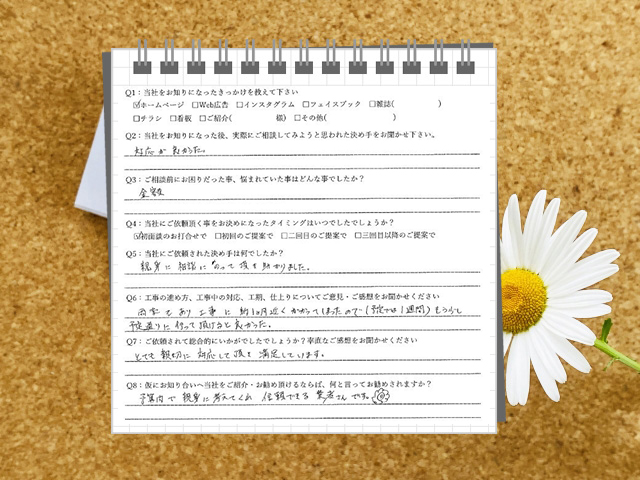 Q1：当社をお知りになったきっかけを教えて下さい
☑ホームページ □Web広告 □インスタグラム □フェイスブック □雑誌( )
□チラシ □看板 □ご紹介( 様) □その他( )
Q2：当社をお知りになった後、実際にご相談してみようと思われた決め手をお聞かせ下さい。
対応が良かった。
Q3：ご相談前にお困りだった事、悩まれていた事はどんな事でしたか？
金額
Q4：当社にご依頼頂く事をお決めになったタイミングはいつでしたでしょうか？
☑初面談のお打合せで □初回のご提案で □二回目のご提案で □三回目以降のご提案で
Q5：当社にご依頼された決め手は何でしたか？
親身に相談にのって頂き助かりました。
Q6：工事の進め方、工事中の対応、工期、仕上りについてご意見・ご感想をお聞かせください
雨などもあり工事に約1ヶ月近くかかってしまったので(予定では1週間)もう少し
予定通りに行って頂けると良かった。
Q7：ご依頼されて総合的にいかがでしたでしょうか？率直なご感想をお聞かせください
とても親切に対応して頂き満足しています。
Q8：仮にお知り合いへ当社をご紹介・お勧め頂けるならば、何と言ってお勧めされますか？
予算内で親身に考えてくれ信頼できる業者さんです。